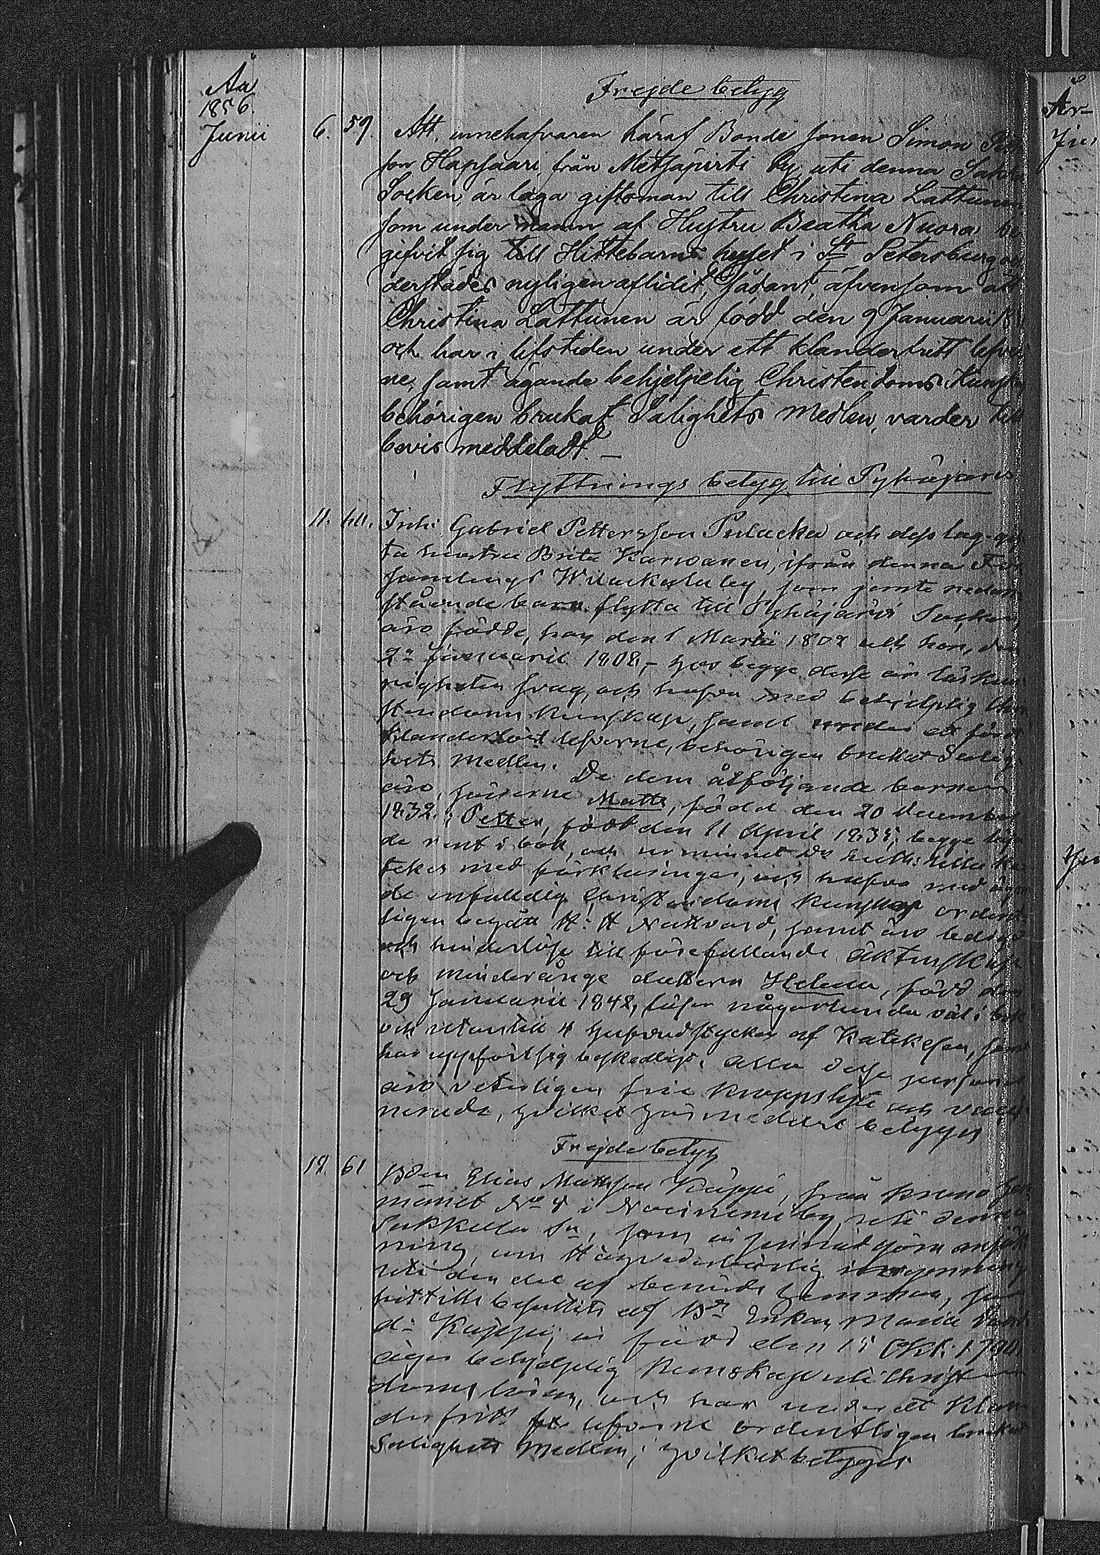 Åa
1856.
Junii
Frejdebetyg
6. 59. Att innehafvaren häraf Bonde sonen Simon
son Hapsaari från Metsäpirti by, uti denna
Socken är laga giftoman till Christina Lattunen
som under namn af Hustru Beatha Nuora be
gifvit sig till Hittebarns huset i St Petersburg
derstädes nyligen aflidit, sådant, äfvensom att
Christina Lattunen är född den 9 Januarii
och har i lifstiden under ett klanderfritt lefver
ne, samt ägande behjelpelig Christendoms Kunskap
behörigen brukat Salighets medlen, varder till
bevis meddeladt.
Flyttnings betyg till Pyhäjärvi
11. 60. Inh: Gabriel Pettersson Pulacka och dess lag-gif
ta hustru Brita Karvanen, ifrån denna För
samlings by, som jemte nedan
stående barn flytta till Pyhäjärvi Socken,
äro födde, han den 1 Martii 1802 och hon, den
2n Januarii 1808,- hos begge desse är läskun
nigheten svag, och hafva med behjelplig Chri
stendoms kunskap, samt under ett
klanderlöst lefverne, behörigen brukat Salig
hets medlen. De dem åtföljande barnen
äro, sönerne Matts, född den 20 December
1832, Petter, född den 11 April 1835; begge
de rent i bok, och utminnet
kes med förklaringar, och hafva med
de enfaldig Christendoms kunskap ordent
ligen begått H: H Nattvard, samt äro ledige
och hinderlöse till förefallande äktenskap
och minderårige dottern Helena, född den
29 Januarii 1842, läser någorlunda väl i bok
och utantill 4 hufvudstycken af Katekesen, samt
har uppfört sig beskedligt. Alla desse personer
äro veterligen frie kroppslyte och vacci
nerade, hvilket här meddelt betygas
Frejdebetyg
18. 61. Bden Elias Mattsson Käppi, från krono hem
manet No 4 i Noisniemi by, uti denna
Sakkola Sn, som är sinnad göra ansök
ning om Högvederbörlig
uti den del af berörde hemman, som
hittills besuttits af Bde Enkan Maria
dr Käppi, är född den 15 Octb: 1790.
äger behjelplig kunskap uti Christen
doms läran, och har under ett klan
derfritt lefverne ordentligen brukat
Salighets medlen; hvilket betygas